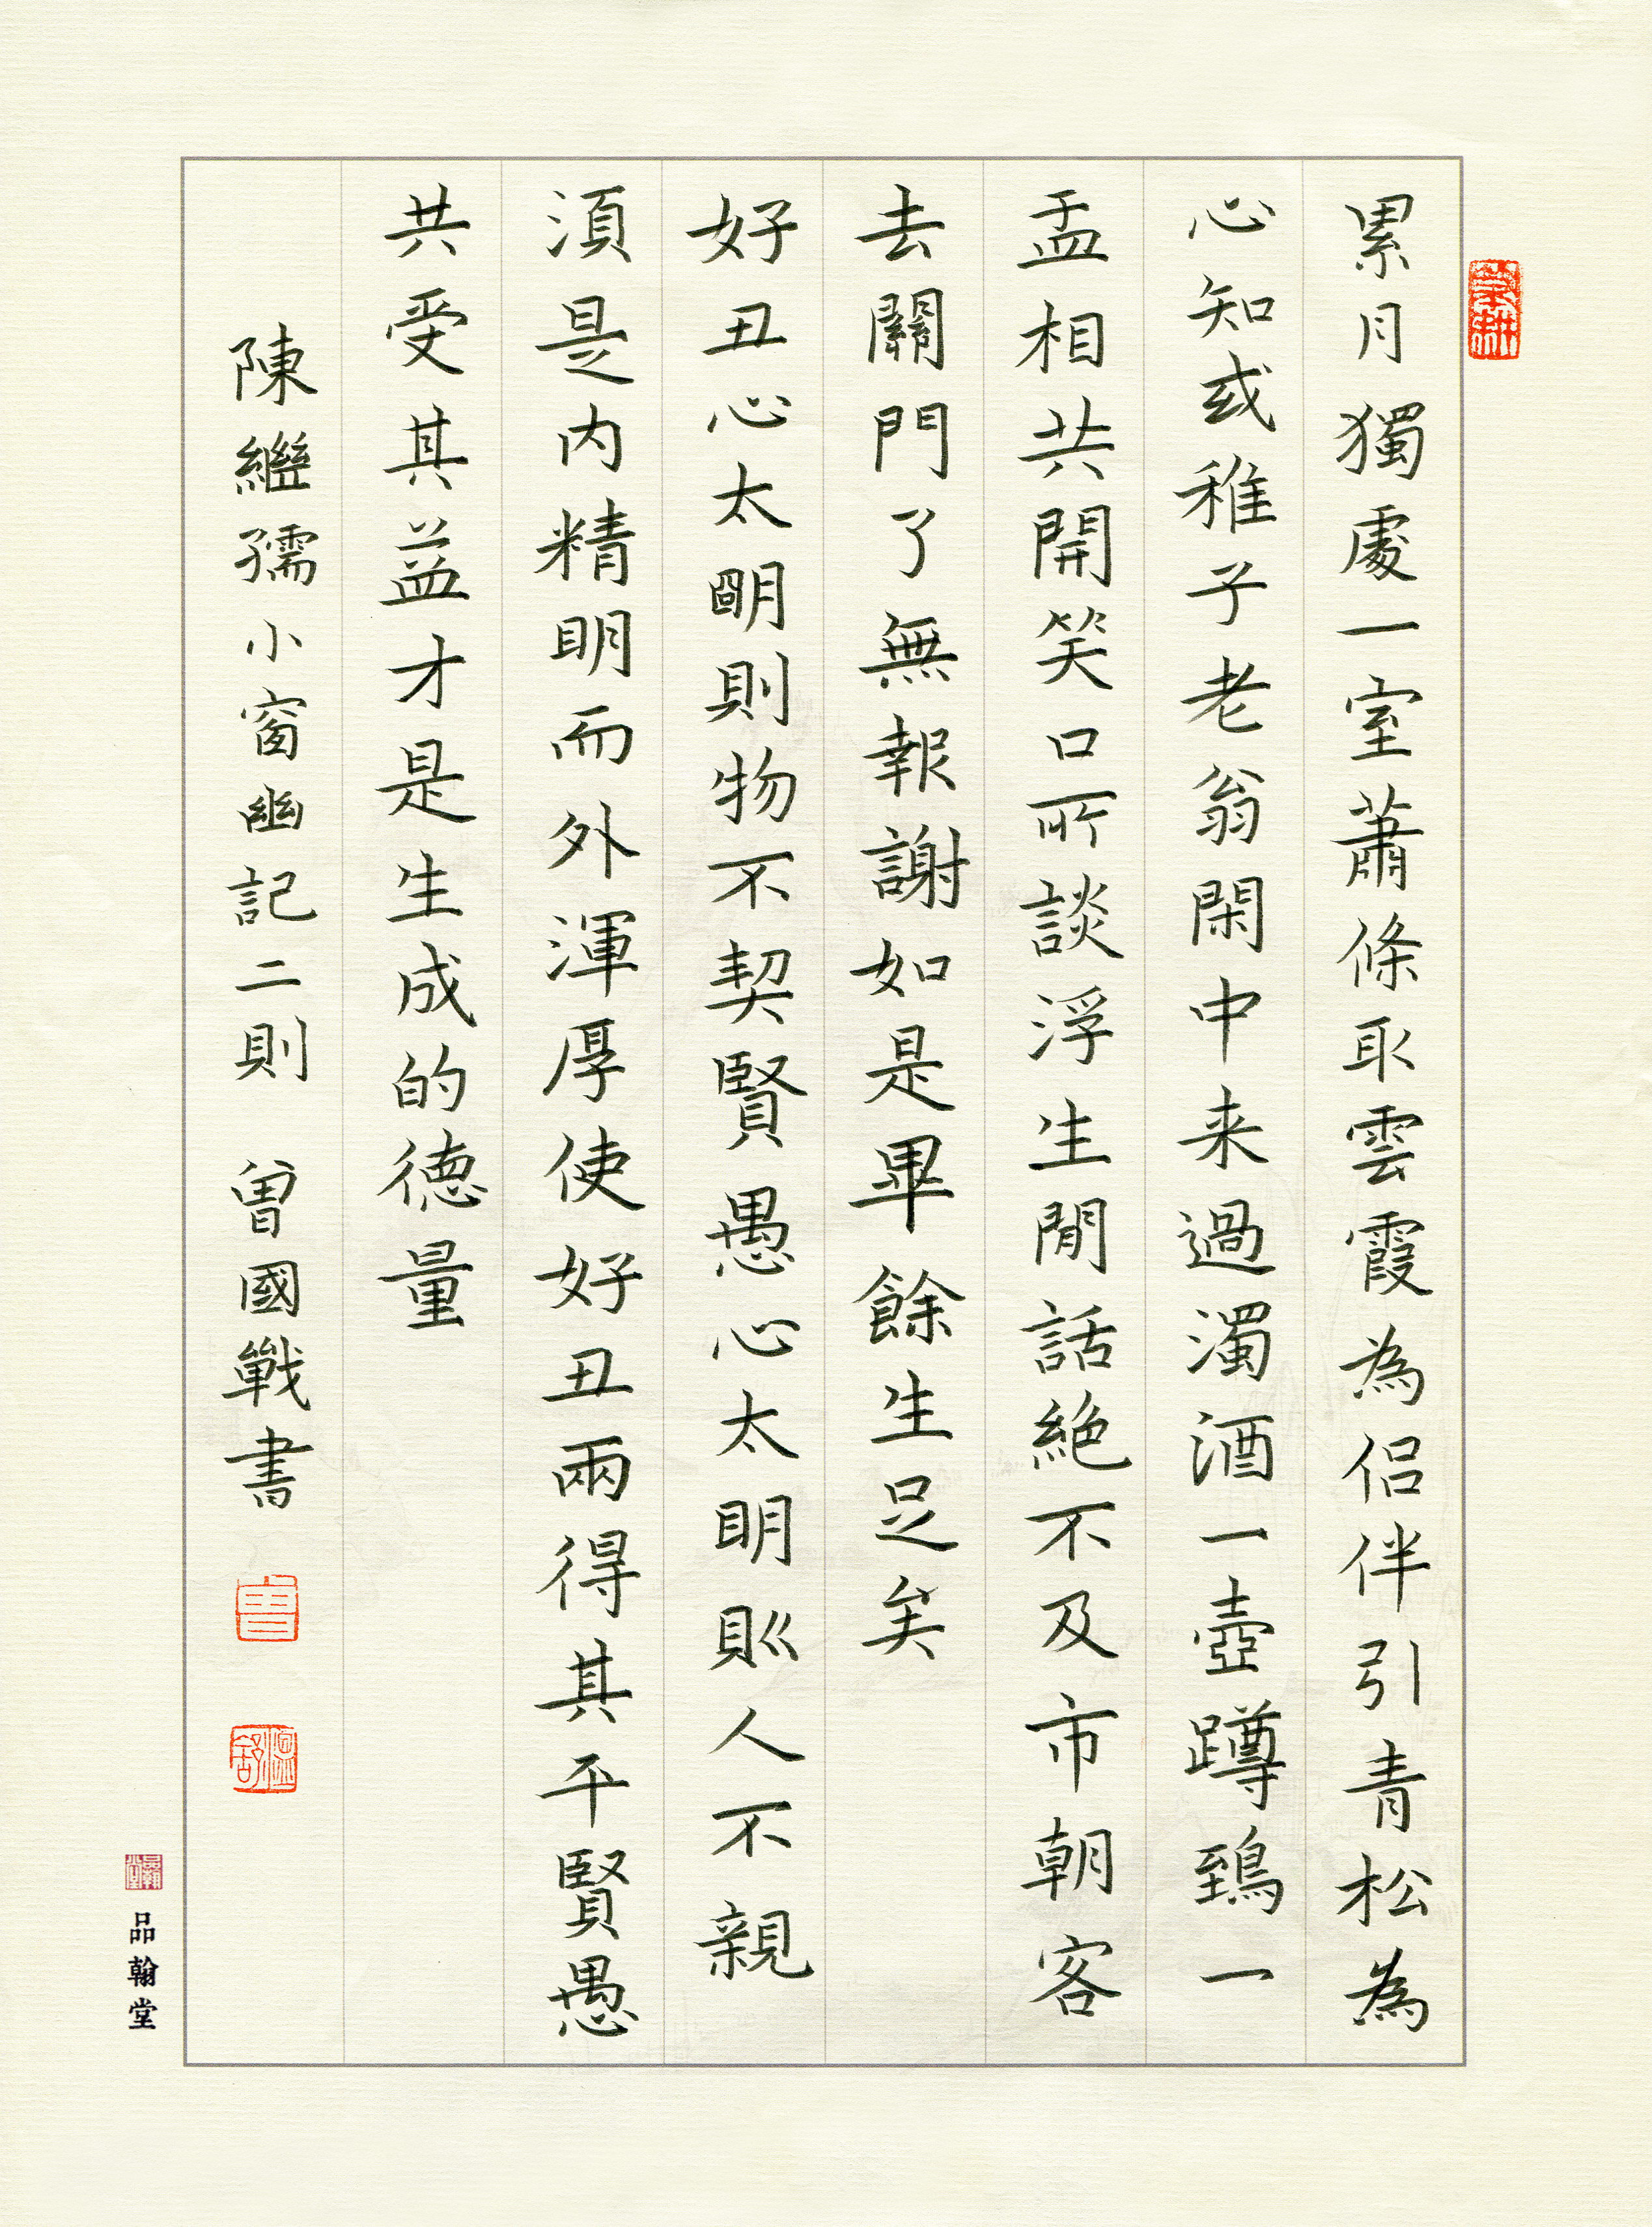 累月獨處一室蕭條取雲霞為侣伴引青松為
心知或稚子老翁閑中来過濁酒一壺蹲鴟一
盂相共開笑口所談浮生閒話絶不及市朝客
去關門了無報謝如是畢餘生足矣
好丑心太明則物不契賢愚心太明則人不親
須是内精明而外渾厚使好丑兩得其平賢愚
共受其益才是生成的德量
陳繼孺小窗幽記二則 曾國戰書
品翰堂